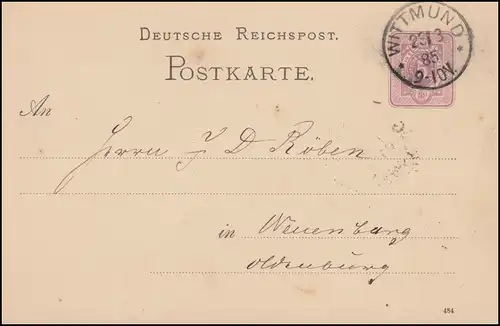 DEUTSCHE REICHSPOST.
POSTKARTE.
WITTMUND
23/3
85
9-10V.
An
Herrn J D Röben
in Neuenburg
Oldenburg
484